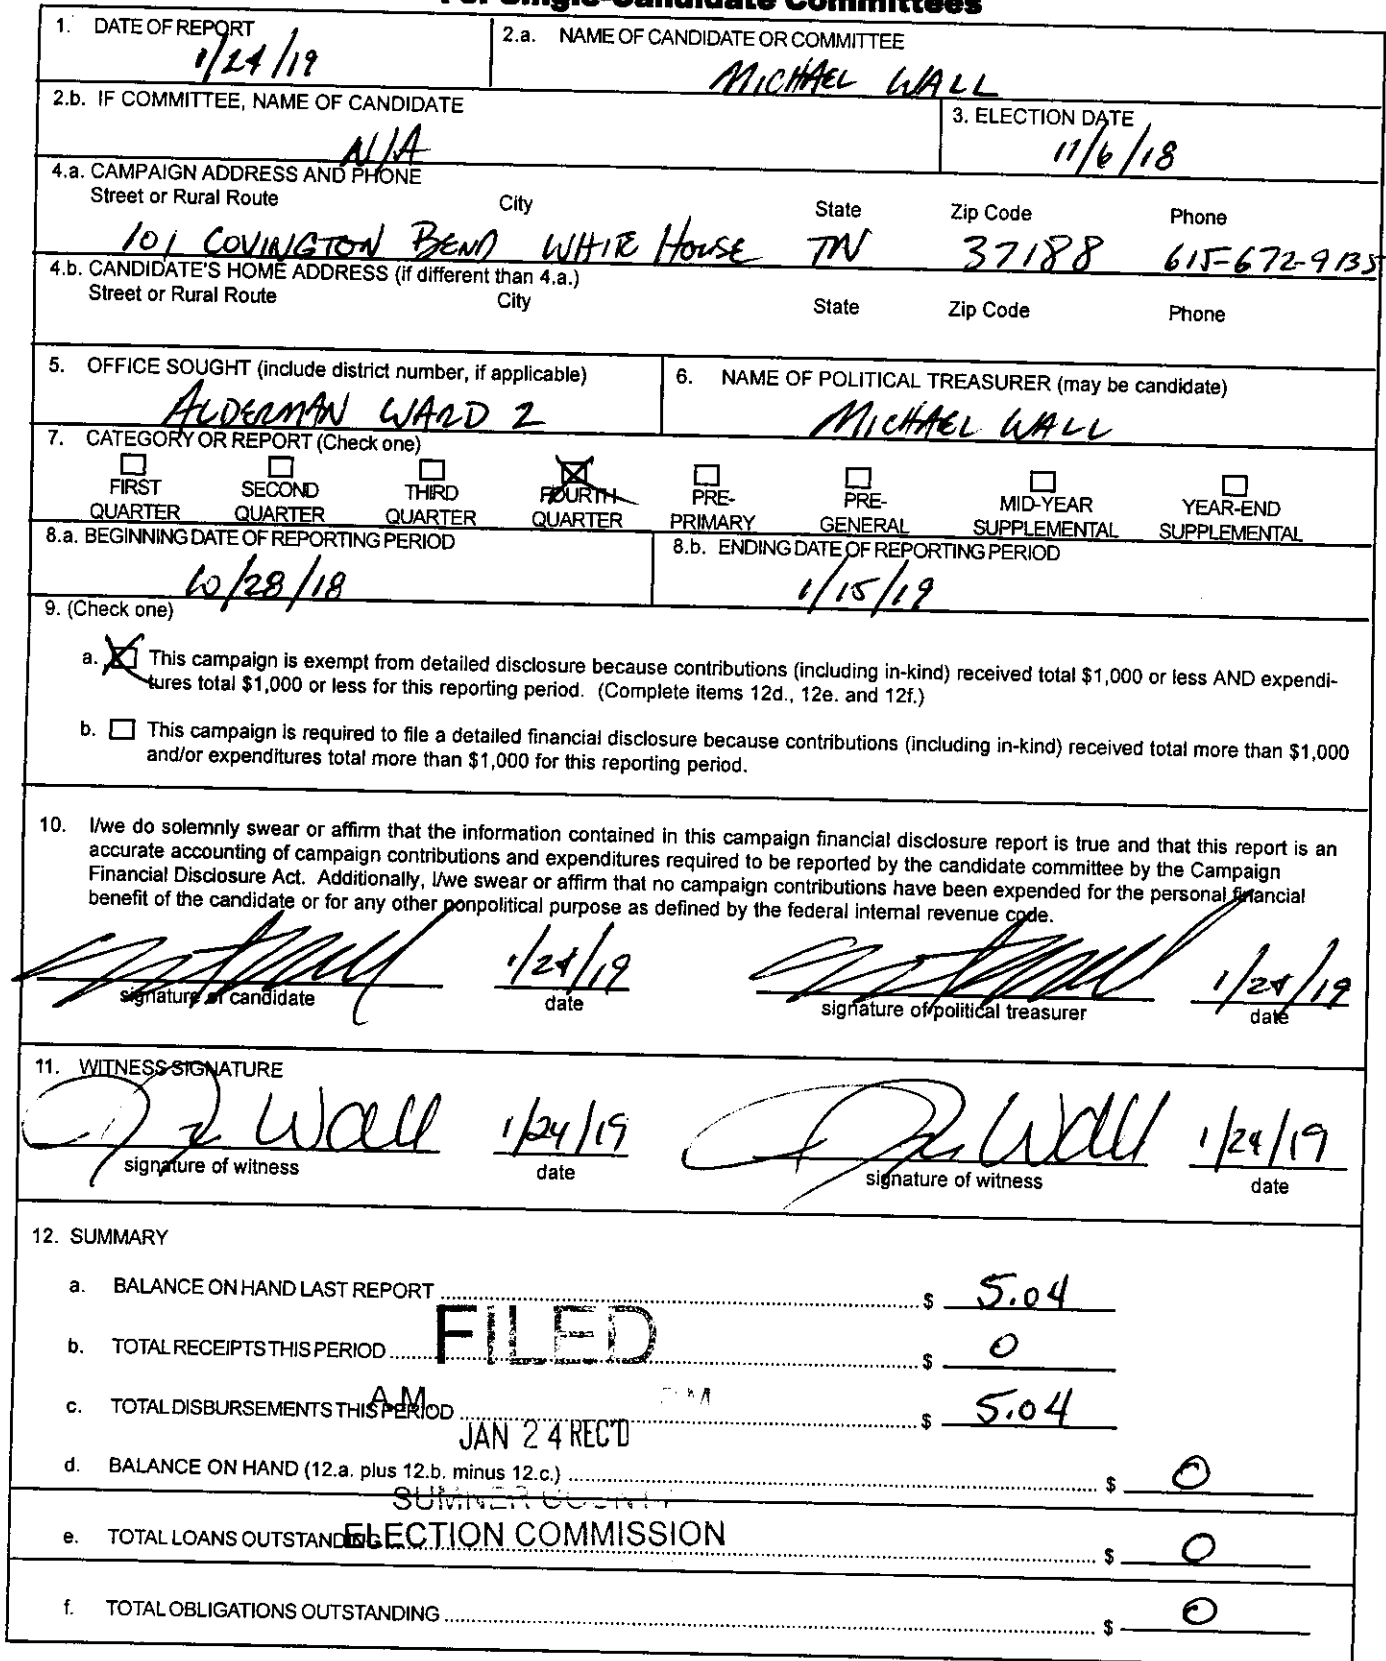 For Single-Candidate Committees
1. DATE OF REPORT
1/24/19
2.a. NAME OF CANDIDATE OR COMMITTEE
MICHAEL WALL
2.b. IF COMMITTEE, NAME OF CANDIDATE
N/A
3. ELECTION DATE
11/6/18
4.a. CAMPAIGN ADDRESS AND PHONE
Street or Rural Route City State Zip Code Phone
101 COVINGTON BEND WHITE HOUSE TN 37188 615-672-9135
4.b. CANDIDATE'S HOME ADDRESS (if different than 4.a.)
Street or Rural Route City State Zip Code Phone
5. OFFICE SOUGHT (include district number, if applicable)
ALDERMAN WARD 2
6. NAME OF POLITICAL TREASURER (may be candidate)
MICHAEL WALL
7. CATEGORY OR REPORT (Check one)
FIRST QUARTER
SECOND QUARTER
THIRD QUARTER
FOURTH QUARTER
PRE-PRIMARY
PRE-GENERAL
MID-YEAR SUPPLEMENTAL
YEAR-END SUPPLEMENTAL
8.a. BEGINNING DATE OF REPORTING PERIOD
10/28/18
8.b. ENDING DATE OF REPORTING PERIOD
1/15/19
9. (Check one)
a. This campaign is exempt from detailed disclosure because contributions (including in-kind) received total $1,000 or less AND expendi-
tures total $1,000 or less for this reporting period. (Complete items 12d., 12e. and 12f.)
b. This campaign is required to file a detailed financial disclosure because contributions (including in-kind) received total more than $1,000
and/or expenditures total more than $1,000 for this reporting period.
10. I/we do solemnly swear or affirm that the information contained in this campaign financial disclosure report is true and that this report is an
accurate accounting of campaign contributions and expenditures required to be reported by the candidate committee by the Campaign
Financial Disclosure Act. Additionally, I/we swear or affirm that no campaign contributions have been expended for the personal financial
benefit of the candidate or for any other nonpolitical purpose as defined by the federal internal revenue code.
1/24/19 1/24/19
signature of candidate date signature of political treasurer date
11. WITNESS SIGNATURE
Wall 1/24/19 Wall 1/24/19
signature of witness date signature of witness date
12. SUMMARY
a. BALANCE ON HAND LAST REPORT $ 5.04
FILED
b. TOTAL RECEIPTS THIS PERIOD $ 0
A.M. P.M.
c. TOTAL DISBURSEMENTS THIS PERIOD $ 5.04
JAN 24 REC'D
d. BALANCE ON HAND (12.a. plus 12.b. minus 12.c.) $ 0
SUMNER COUNTY
ELECTION COMMISSION
e. TOTAL LOANS OUTSTANDING $ 0
f. TOTAL OBLIGATIONS OUTSTANDING $ 0